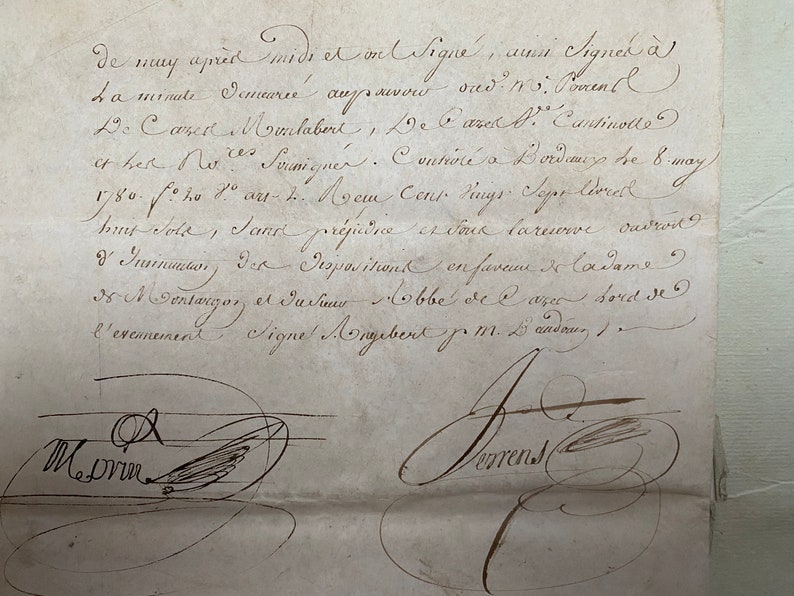 de may après midi et ont Signé, ainsi Signés à
La minute demeurée au pouvoir dud.t M.e Perrens
De Cazes Monlabert, De Cazes V.ve Cantinolle
et Les No.res Soussignés. Controlé a Bordeaux Le 8. may
1780. f.o 20 V.o art. 2. Reçu Cent Vingt Sept Livres
huit Sols, Sans préjudice et sous la reserve du droit
d'Insinuation des dispositions en faveur de la dame
de et du Sieur Abbé de Cazes Lors de
l'evennement Signé p.r M.
Perrens